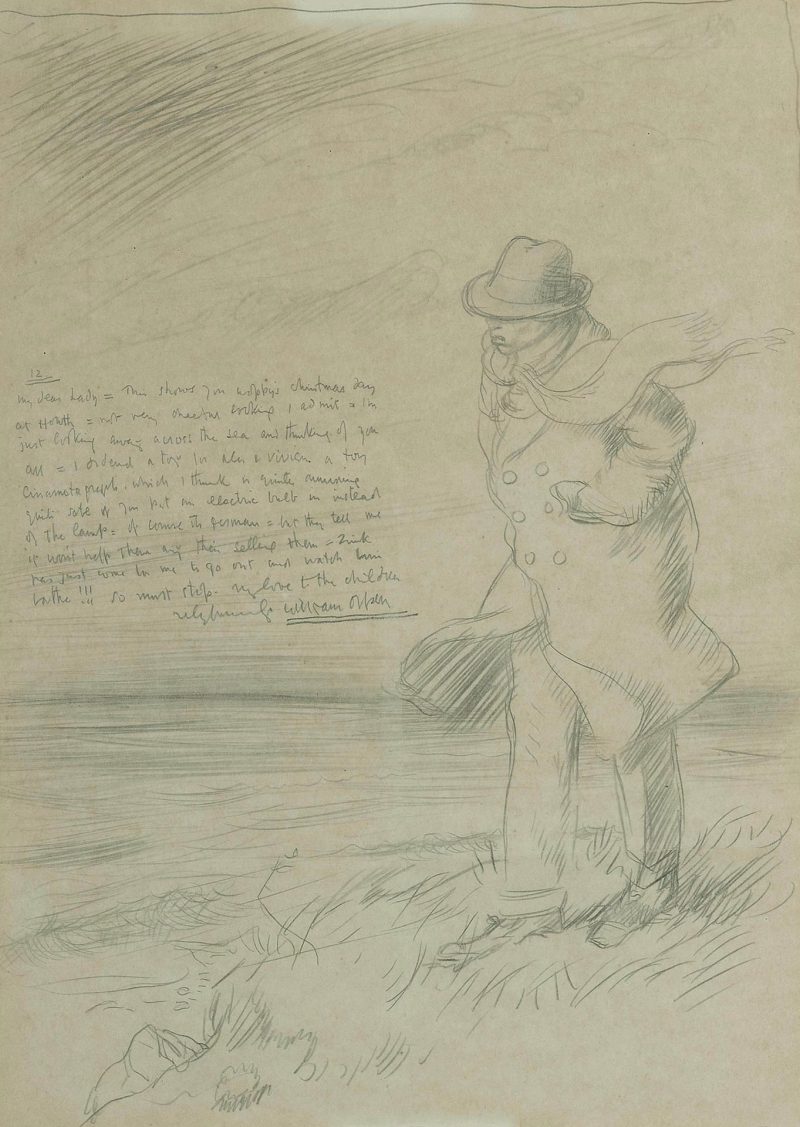 12_
my dear Lady = This shows you Christmas Day
at Howth = not very cheerful looking I admit = I'm
just looking away across the sea and thinking of you
all = I ordered a toy for & Vivien a toy
Cinamatograph: which I think is quite amusing
quite safe if you put an electric bulb in instead
of the lamp = of course its german = but they tell me
it won't help them any their selling them =
has just come for me to go out and watch him
bathe !!! so must stop. my love to the children
William Orpen